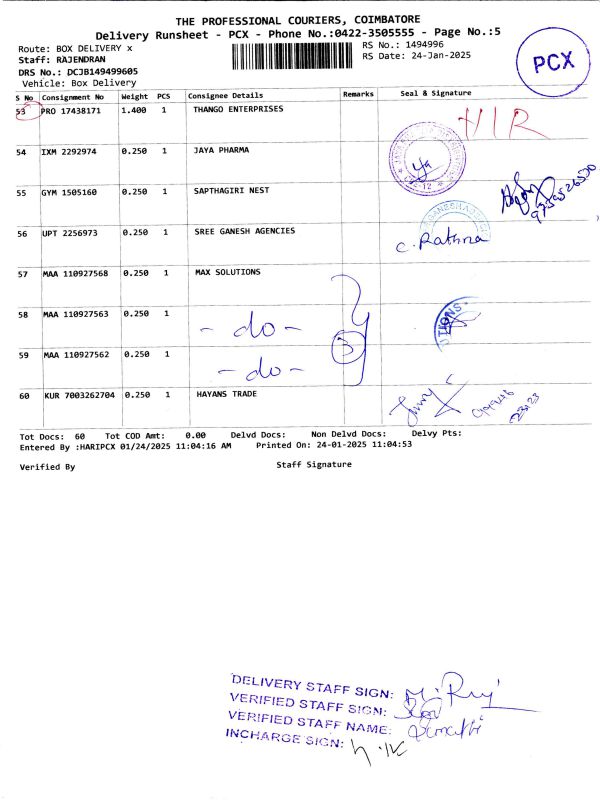 THE PROFESSIONAL COURIERS, COIMBATORE
Delivery Runsheet - PCX - Phone No.:0422-3505555 - Page No.:5
Route: BOX DELIVERY x
RS No.: 1494996
Staff: RAJENDRAN
RS Date: 24-Jan-2025
DRS No.: DCJB149499605
Vehicle: Box Delivery
PCX
S No Consignment No Weight PCS Consignee Details Remarks Seal & Signature
53 PRO 17438171 1.400 1 THANGO ENTERPRISES
54 IXM 2292974 0.250 1 JAYA PHARMA
55 GYM 1505160 0.250 1 SAPTHAGIRI NEST
56 UPT 2256973 0.250 1 SREE GANESH AGENCIES C. Rathna
57 MAA 110927568 0.250 1 MAX SOLUTIONS
58 MAA 110927563 0.250 1 - do -
59 MAA 110927562 0.250 1 - do - 3
60 KUR 7003262704 0.250 1 HAYANS TRADE
Tot Docs: 60 Tot COD Amt: 0.00 Delvd Docs: Non Delvd Docs: Delvy Pts:
Entered By :HARIPCX 01/24/2025 11:04:16 AM Printed On: 24-01-2025 11:04:53
Verified By Staff Signature
DELIVERY STAFF SIGN:
VERIFIED STAFF SIGN:
VERIFIED STAFF NAME:
INCHARGE SIGN: